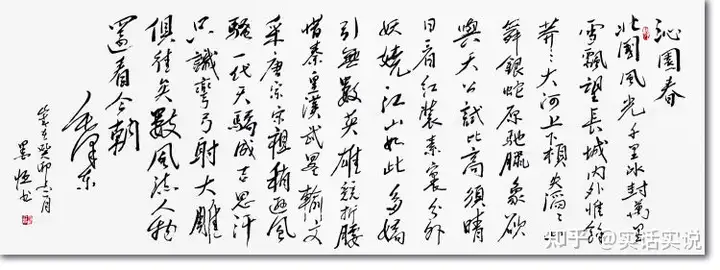 沁園春
北國風光千里冰封萬里
雪飄望長城内外惟餘
莽々大河上下頓失滔々山
舞銀蛇原馳臘象欲
與天公試比高須晴
日看紅裝素裹分外
妖嬈江山如此多嬌
引無數英雄競折腰
惜秦皇漢武畧輸文
采唐宗宋祖稍遜風
騷一代天驕成吉思汗
只識彎弓射大雕
俱往矣數風流人物
還看今朝
毛澤東
癸卯
墨恒书
知乎 @实话实说